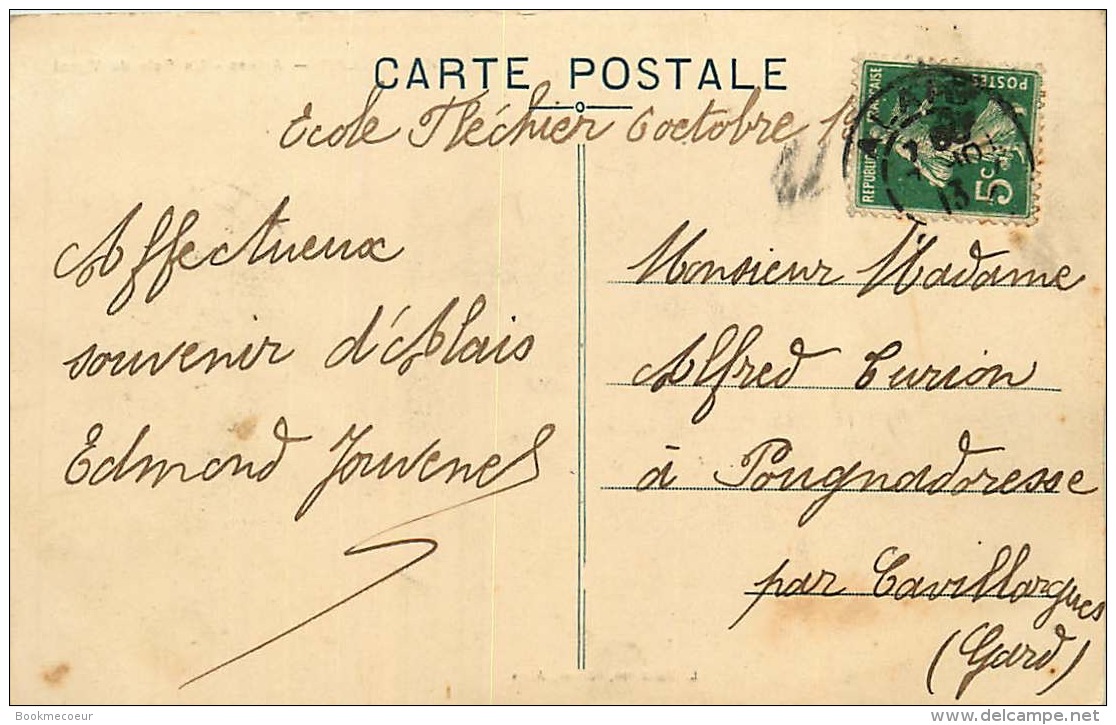 CARTE POSTALE
Ecole Fléchier 6 octobre 19
REPUBLIQUE FRANÇAISE
POSTES
5c
13
Affectueux
souvenir d'Alais
Edmond Jouvenel
Monsieur Madame
Alfred Curion
à Pougnadoresse
par Cavillargues
(Gard)
Bookmecoeur
www.delcampe.net